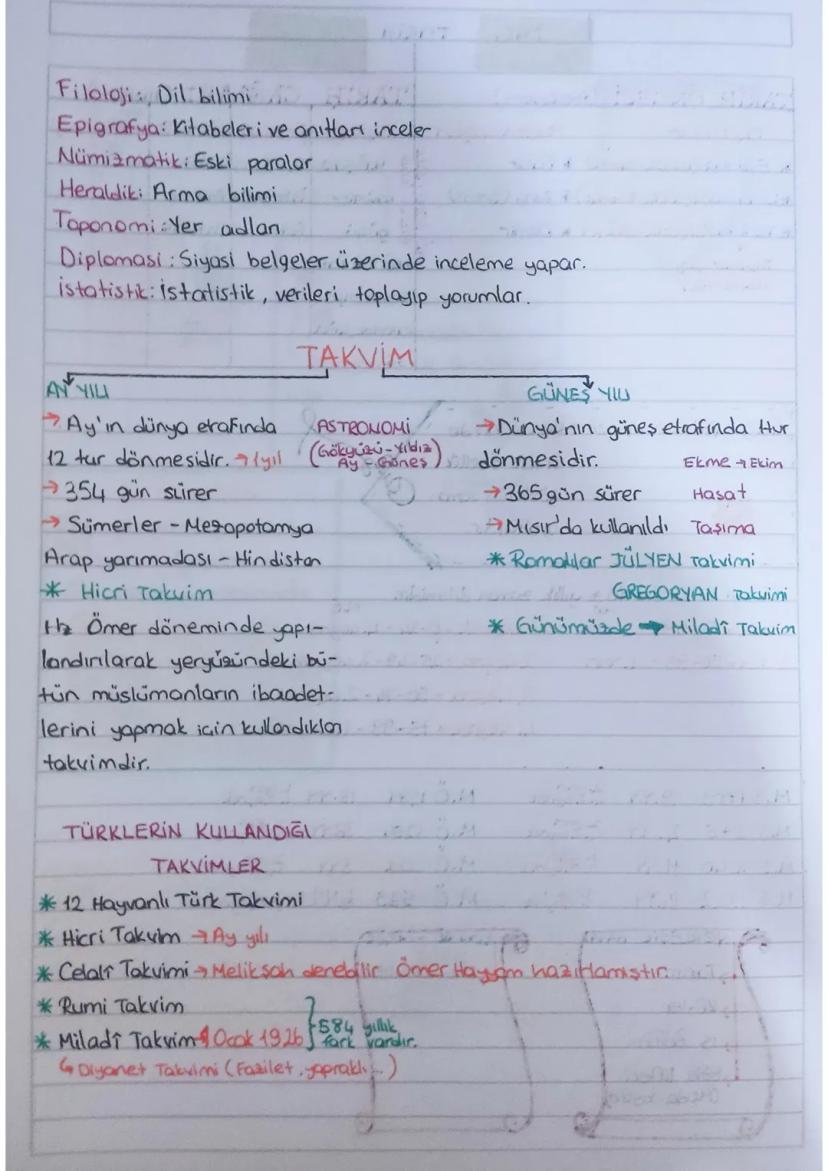 Filoloji: Dil bilimi
Epigrafya: Kitabeleri ve anıtları inceler
Nümizmatik: Eski paralar
Heraldik: Arma bilimi
Toponomi: Yer adları
Diplomasi: Siyasi belgeler üzerinde inceleme yapar.
İstatistik: İstatistik, verileri toplayıp yorumlar.
TAKVİM
AY YILI
→ Ay'ın dünya etrafında
12 tur dönmesidir. → 1 yıl
→ 354 gün sürer
→ Sümerler - Mezopotamya
Arap yarımadası - Hindistan
* Hicri Takvim
Hz Ömer döneminde yapı-
landırılarak yeryüzündeki bü-
tün müslümanların ibaadet-
lerini yapmak için kullandıkları
takvimdir.
ASTRONOMİ
(Gökyüzü-Yıldız
Ay - Güneş)
GÜNEŞ YILI
→ Dünya'nın güneş etrafında tur
dönmesidir. Ekme → Ekim
→ 365 gün sürer Hasat
→ Mısır'da kullanıldı Taşıma
* Romalılar JÜLYEN Takvimi
GREGORYAN Takvimi
* Günümüzde → Miladî Takvim
TÜRKLERİN KULLANDIĞI
TAKVİMLER
* 12 Hayvanlı Türk Takvimi
* Hicri Takvim → Ay yılı
* Celalî Takvimi → Melikşah denebilir Ömer Hayyam hazırlamıştır.
* Rumi Takvim
* Miladî Takvim 1 Ocak 1926 } 584 yıllık
fark vardır.
↳ Diyanet Takvimi (Fazilet, yapraklı...)